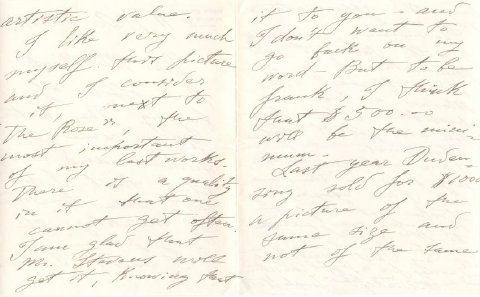 artistic value.
I like very much
myself that picture
and I consider
it next to
"The Rose", the
most important
of my last works.
There is a quality
in it that one
cannot get often
I am glad that
Mr. Stevens will
get it, Knowing that
it to you - and
I don't want to
go back on my
word - But to be
frank, I think
that $500.00
will be the mini-
mum -
Last year Duden-
sing sold for $1000
a picture of the
same size and
not of the same